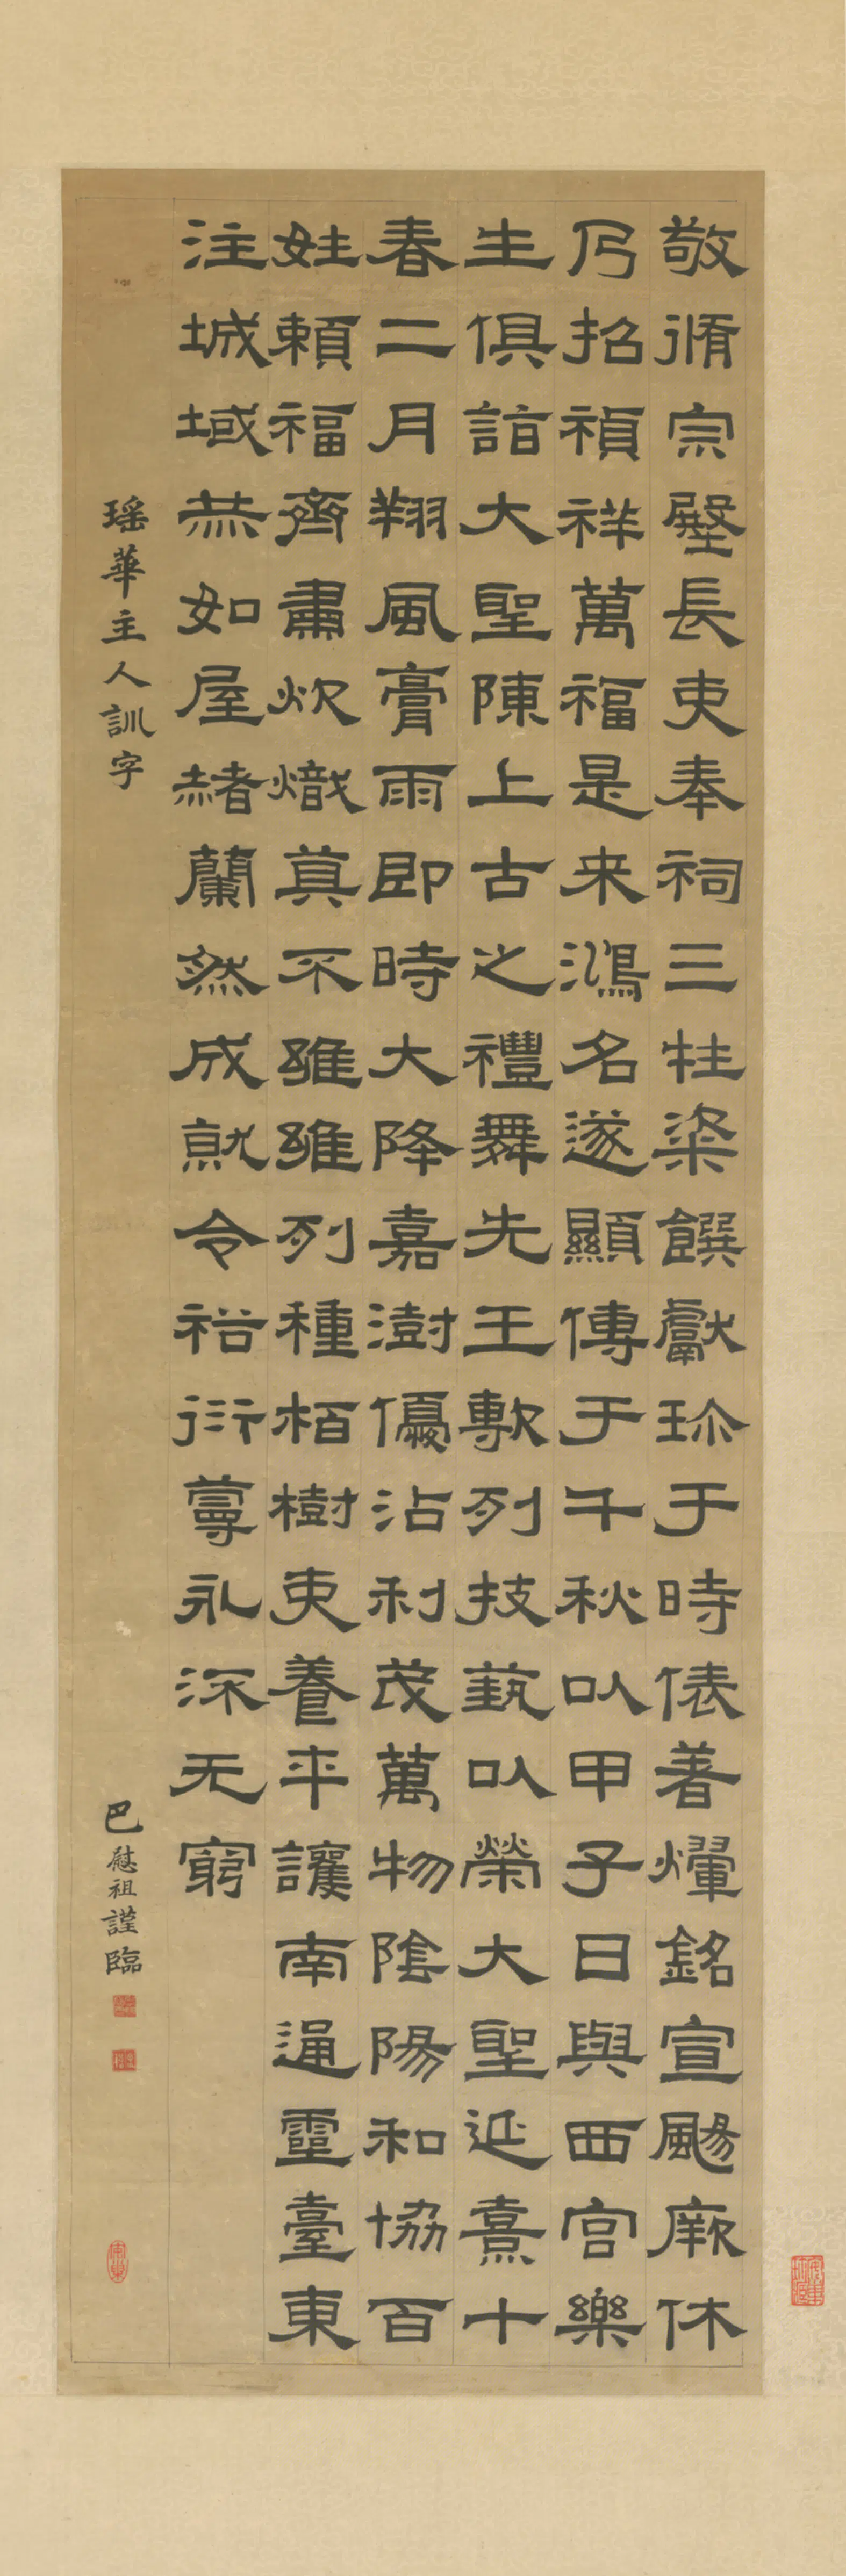 敬脩宗壂長吏奉祠三牲粢饌獻珎于時俵著燿銘宣颺厥休
乃招禎祥萬福是来鴻名遂顯傳于千秋以甲子日與西宮樂
生俱詣大聖陳上古之禮舞先王列技藝以榮大聖延熹十
春二月翔風膏雨即時大降嘉澍優沾利茂萬物陰陽和協百
姓賴福齊肅炊熾莫不雝雝列種栢樹吏養平讓南通靈臺東
注城域恭如屋赭蘭然成就令裕衍永深无窮
瑶華主人訓字
巴慰祖謹臨